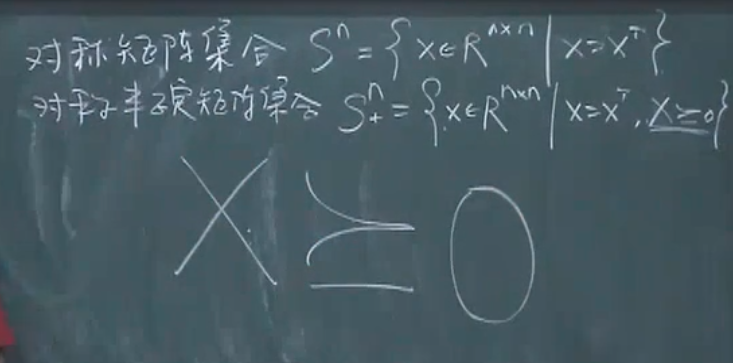 对称矩阵集合 Sⁿ = { X ∈ Rⁿˣⁿ | X = Xᵀ }
对称半正定矩阵集合 S₊ⁿ = { X ∈ Rⁿˣⁿ | X = Xᵀ, X ⪰ 0 }
X ⪰ 0